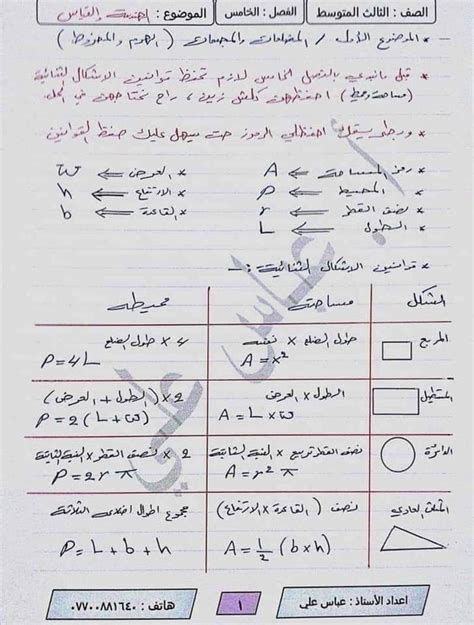 الصف : الثالث المتوسط
الفصل : الخامس
الموضوع : هندسة القياس
- * الموضوع الأول / المضلعات والمجسمات ( الهرم والمخروط )
* قبل مانبدي بالفصل الخامس لازم تحفظ قوانين الاشكال الثنائية
( مساحة ومحيط ) احفظهن كلش زين ، راح نحتاجهن في الحل
* ورجاءً احفظلي الرموز حتى يسهل عليك حفظ القوانين
* رمز المساحة ← A
* العرض ← w
* المحيط ← P
* الارتفاع ← h
* نصف القطر ← r
* القاعدة ← b
* الطول ← L
* قوانين الاشكال الثنائية :-
الشكل
مساحته
محيطه
المربع
طول الضلع × نفسه
A = x²
4 × طول الضلع
P = 4L
المستطيل
الطول × العرض
A = L × w
2 × ( الطول + العرض )
P = 2 ( L + w )
الدائرة
نصف القطر تربيع × النسبة الثابتة
A = r² π
2 × نصف القطر × النسبة الثابتة
P = 2 r π
المثلث العادي
نصف ( القاعدة × الارتفاع )
A = 1/2 ( b × h )
مجموع اطوال اضلاعه الثلاثة
P = L + b + h
أ. عباس علي
اعداد الأستاذ : عباس علي
١
هاتف : ٠٧٧٠٠٨٨١٦٤٠